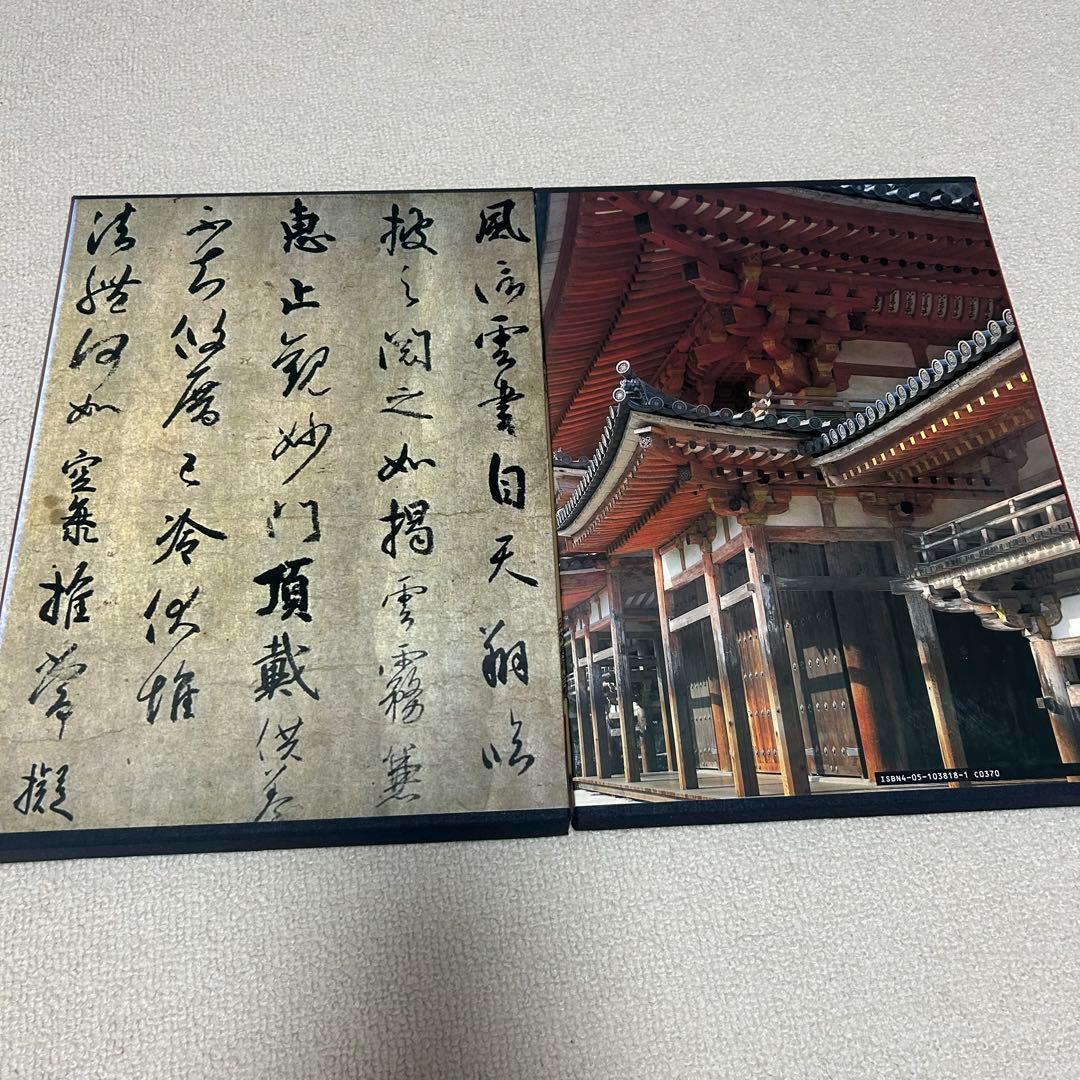 風信雲書自天翔臨
披之閱之如揭雲霧兼
惠止觀妙門頂戴供養
不知攸厝已冷伏惟
法體何如空海推常擬
ISBN4-05-103818-1 C0370